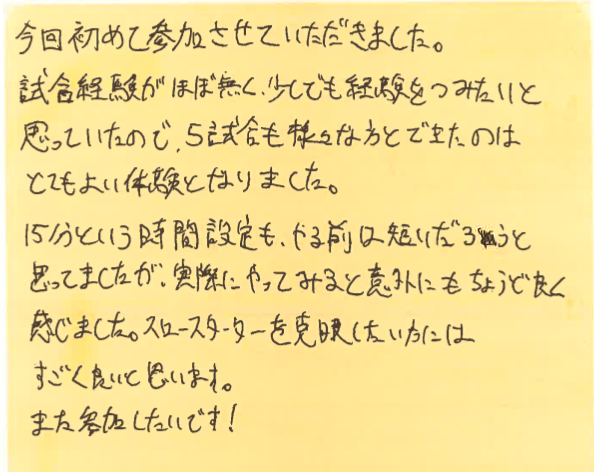 今回初めて参加させていただきました。
試合経験がほぼ無く、少しでも経験をつみたいと
思っていたので、5試合も様々な方とできたのは
とてもよい体験となりました。
15分という時間設定も、やる前は短いだろうと
思ってましたが、実際にやってみると意外にもちょうど良く
感じました。スロースターターを克服したい方には
すごく良いと思います。
また参加したいです!